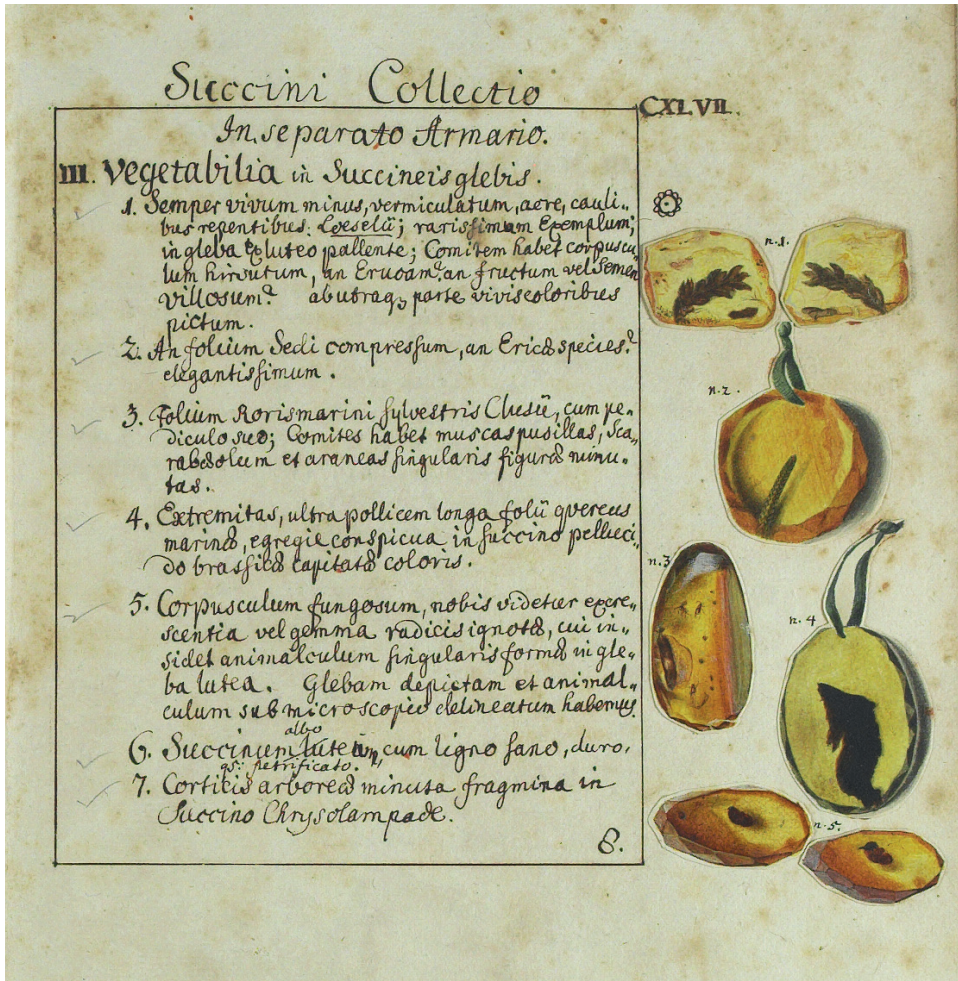 Succini Collectio
CXLVII.
In separato Armario.
III. Vegetabilia in Succineis glebis.
1. Semper vivum minus, vermiculatum, acre, cauli„
bus repentibus. Loeselii; rarissimum Exemplum;
in gleba ex luteo pallente; Comitem habet corpuscu„
lum hirsutum, an Erucam? an fructum vel Semen
villosum? ab utraq; parte vivis coloribus
pictum.
2. An folium Sedi compressum, an Ericæ species?
elegantissimum.
3. Folium Rorismarini sylvestris Clusii, cum pe„
diculo suo; Comites habet muscas pusillas, Sca„
rabæolum et araneas singularis figuræ minu„
tas.
4. Extremitas, ultra pollicem longa folii quercus
marinæ, egregie conspicua in succino pelluci„
do brassicæ capitatæ coloris.
5. Corpusculum fungosum, nobis videtur excre„
scentia vel gemma radicis ignotæ, cui in„
sidet animalculum singularis formæ in gle„
ba lutea. Glebam depictam et animal„
culum sub microscopio delineatum habemus.
albo
6. Succinum luteum, cum ligno sano, duro,
qs: petrificato.
7. Corticis arboreæ minuta fragmina in
Succino Chrysolampade.
8.
n.1.
n.2.
n.3
n.4
n.5.